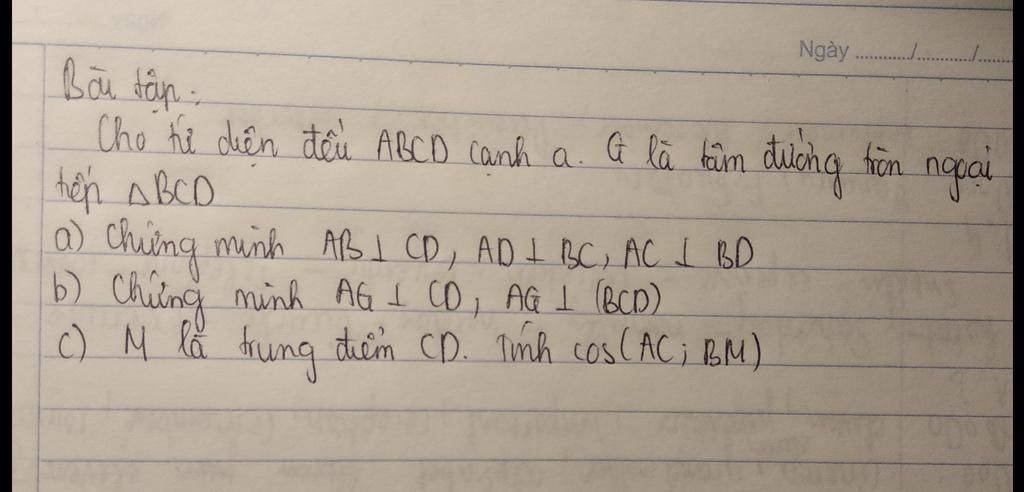 Ngày ........../........../.......
Bài tập:
Cho tứ diện đều ABCD cạnh a. G là tâm đường tròn ngoại
tiếp △BCD
a) Chứng minh AB ⊥ CD, AD ⊥ BC, AC ⊥ BD
b) Chứng minh AG ⊥ CD, AG ⊥ (BCD)
c) M là trung điểm CD. Tính cos(AC; BM)